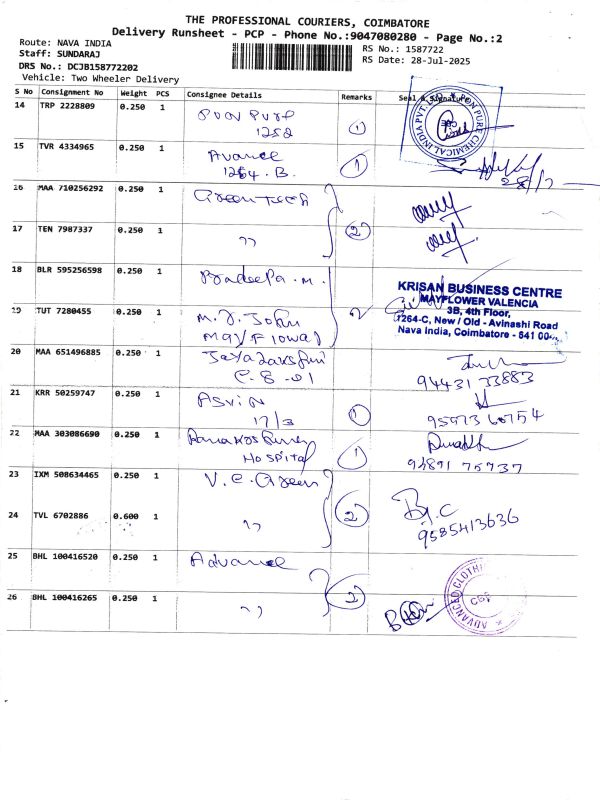 THE PROFESSIONAL COURIERS, COIMBATORE
Delivery Runsheet - PCP - Phone No.:9047080280 - Page No.:2
Route: NAVA INDIA
RS No.: 1587722
Staff: SUNDARAJ
RS Date: 28-Jul-2025
DRS No.: DCJB158772202
Vehicle: Two Wheeler Delivery
S No Consignment No Weight PCS Consignee Details Remarks Seal & Signature
14 TRP 2228809 0.250 1 PON PURE
1252 1
15 TVR 4334965 0.250 1 Avance
1264.B. 1
28/7
16 MAA 710256292 0.250 1 Green Tech
17 TEN 7987337 0.250 1 " 2
18 BLR 595256598 0.250 1 Pradeepa.M.
KRISAN BUSINESS CENTRE
MAYFLOWER VALENCIA
3B, 4th Floor,
1264-C, New / Old - Avinashi Road
Nava India, Coimbatore - 641 00
19 TUT 7280455 0.250 1 M.J. John
Mayflower 2
20 MAA 651496885 0.250 1 Jayalakshmi
C.S.01
94431 33883
21 KRR 50259747 0.250 1 ASVIN
17/3 1
22 MAA 303086690 0.250 1 Ramakrishna
Hospital 1
94891 75737
23 IXM 508634465 0.250 1 V.C. Green
24 TVL 6702886 0.600 1 " 2
9585413636
25 BHL 100416520 0.250 1 Advance
26 BHL 100416265 0.250 1 " 2
PON PURE CHEMICAL INDIA PVT. LTD.
ADVANCED CLOTHI